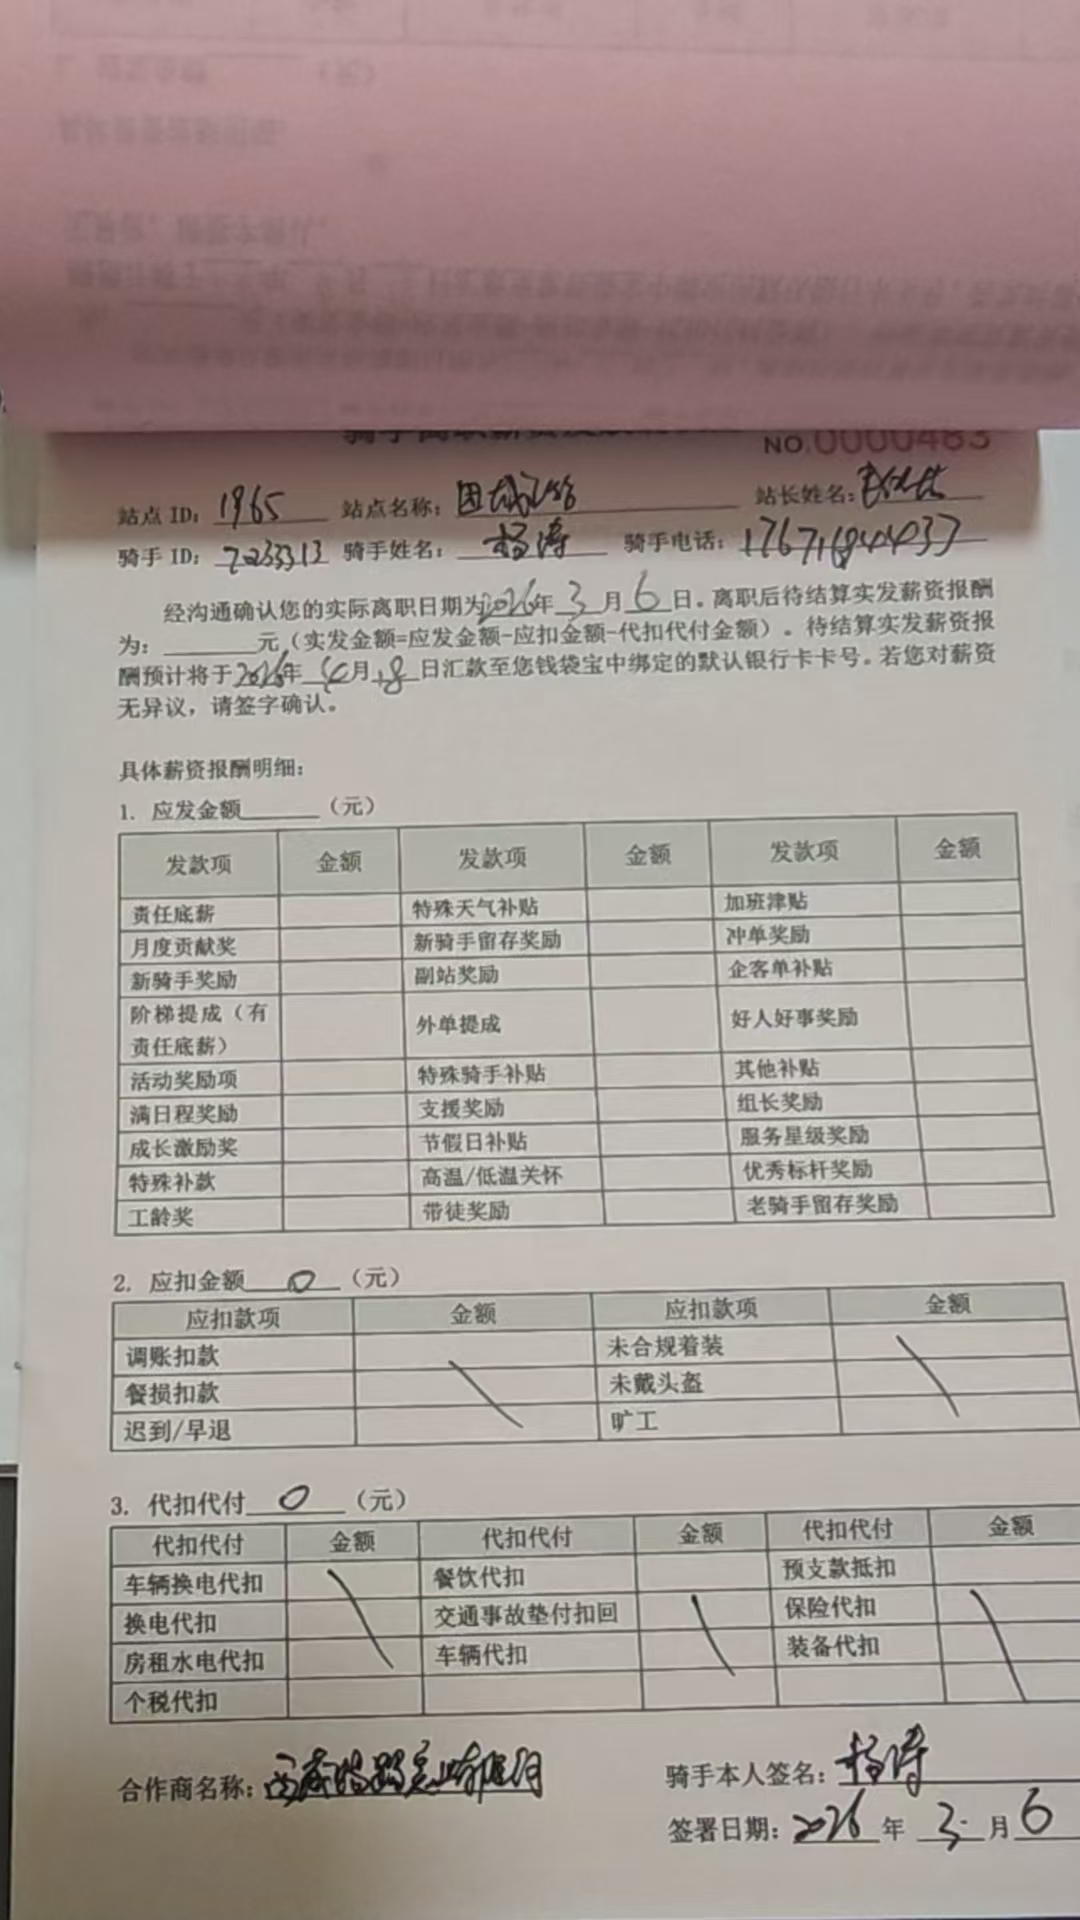 NO.0000483
站点 ID: 1965 站点名称: 团城 站长姓名:
骑手 ID: 7233313 骑手姓名: 杨涛 骑手电话: 17671844437
经沟通确认您的实际离职日期为2026年 3 月 6 日。离职后待结算实发薪资报酬
为: 元（实发金额=应发金额-应扣金额-代扣代付金额）。待结算实发薪资报
酬预计将于2026年 4 月 18 日汇款至您钱袋宝中绑定的默认银行卡卡号。若您对薪资
无异议，请签字确认。
具体薪资报酬明细:
1. 应发金额 （元）
发款项 金额 发款项 金额 发款项 金额
责任底薪 特殊天气补贴 加班津贴
月度贡献奖 新骑手留存奖励 冲单奖励
新骑手奖励 副站奖励 企客单补贴
阶梯提成（有 外单提成 好人好事奖励
责任底薪）
活动奖励项 特殊骑手补贴 其他补贴
满日程奖励 支援奖励 组长奖励
成长激励奖 节假日补贴 服务星级奖励
特殊补款 高温/低温关怀 优秀标杆奖励
工龄奖 带徒奖励 老骑手留存奖励
2. 应扣金额 0 （元）
应扣款项 金额 应扣款项 金额
调账扣款 未合规着装
餐损扣款 未戴头盔
迟到/早退 旷工
3. 代扣代付 0 （元）
代扣代付 金额 代扣代付 金额 代扣代付 金额
车辆换电代扣 餐饮代扣 预支款抵扣
换电代扣 交通事故垫付扣回 保险代扣
房租水电代扣 车辆代扣 装备代扣
个税代扣
合作商名称: 骑手本人签名: 杨涛
签署日期: 2026 年 3 月 6